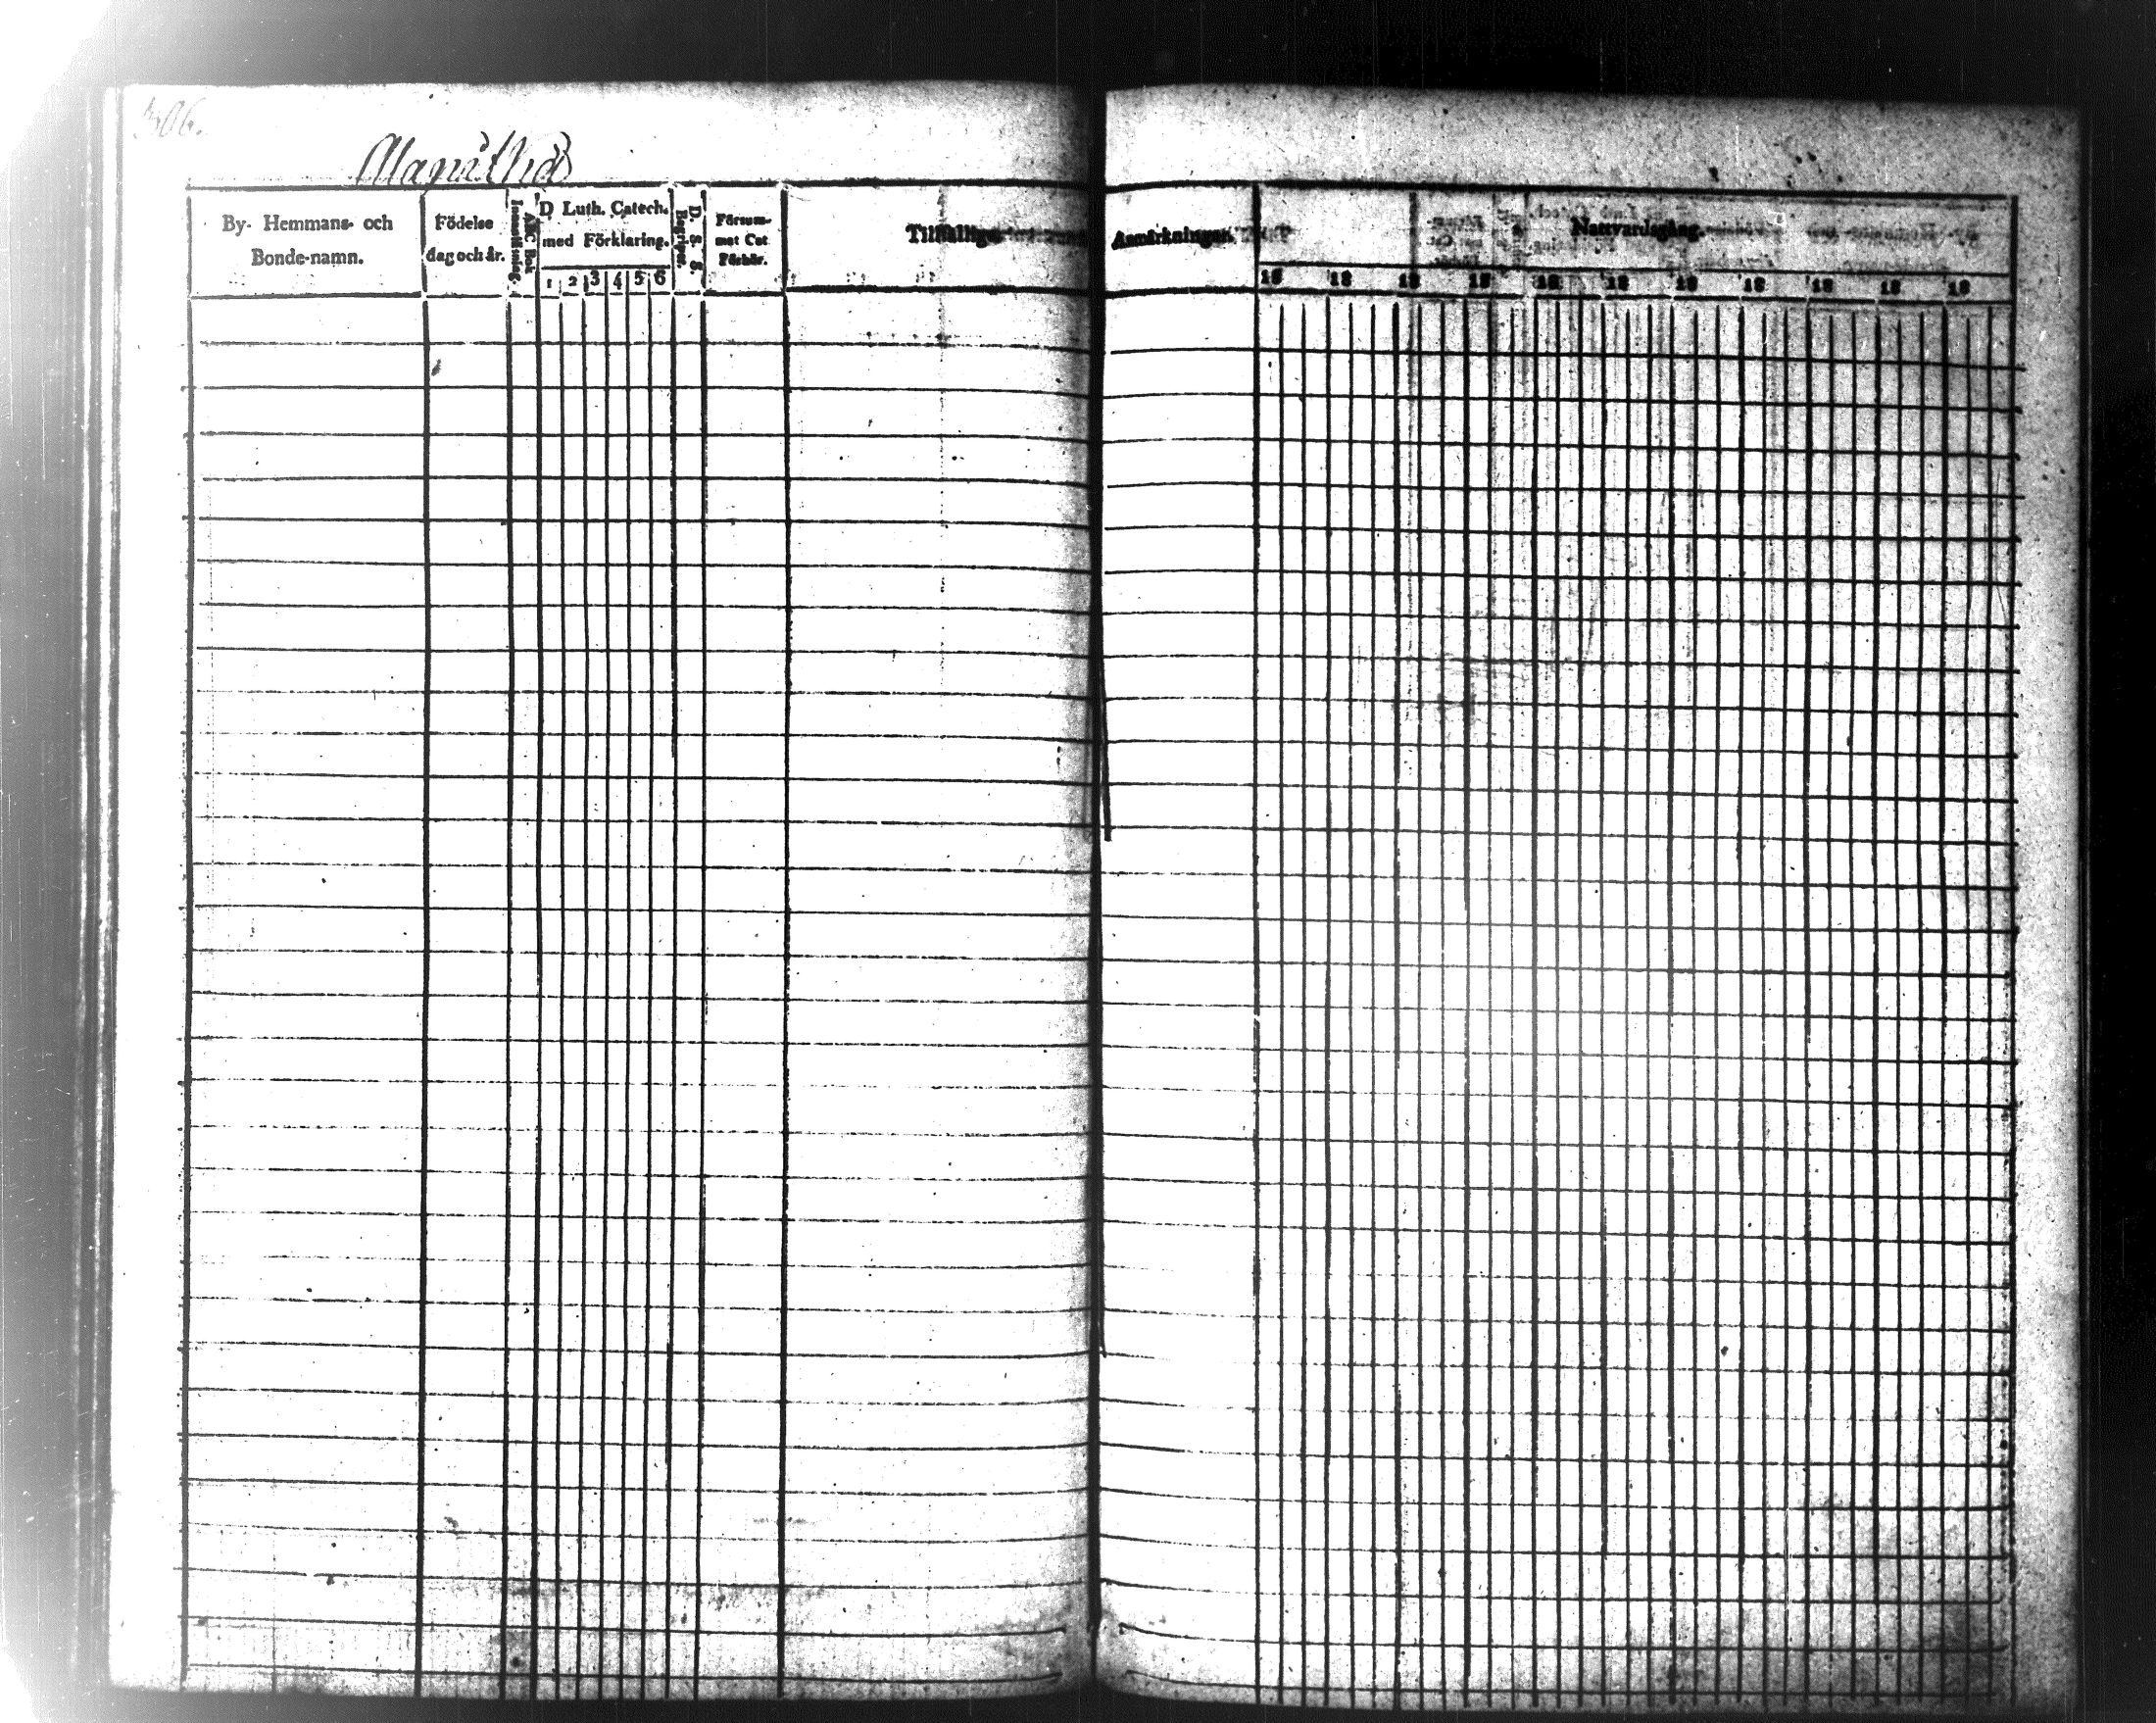 506.
By- Hemmans- och Bonde-namn.
Födelse dag och år.
ABC Bok
Innanläsning.
D. Luth. Catech. med Förklaring.
1 2 3 4 5 6
D. S. S.
Begriper.
Försummat Cat. Förhör.
Tillfällige Anmärkningar.
Nattvardsgång.
18 18 18 18 18 18 18 18 18 18 18